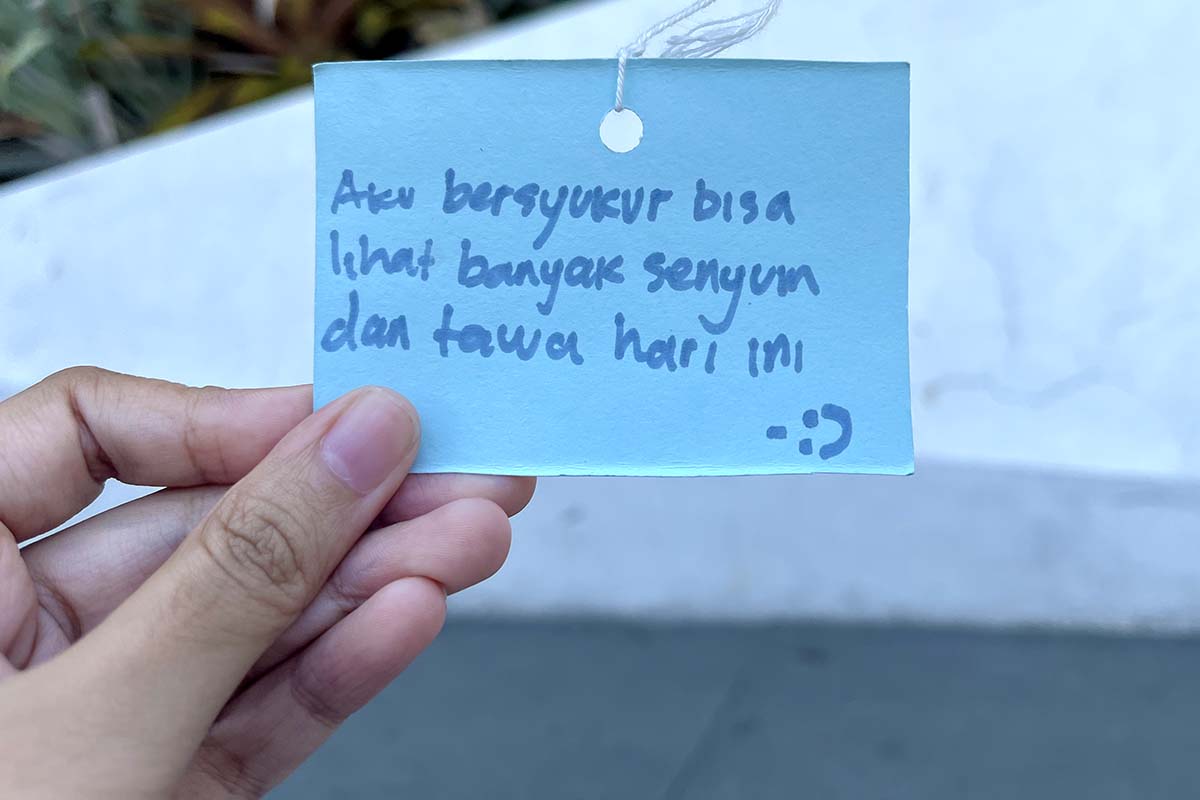 Aku bersyukur bisa
lihat banyak senyum
dan tawa hari ini
-:)